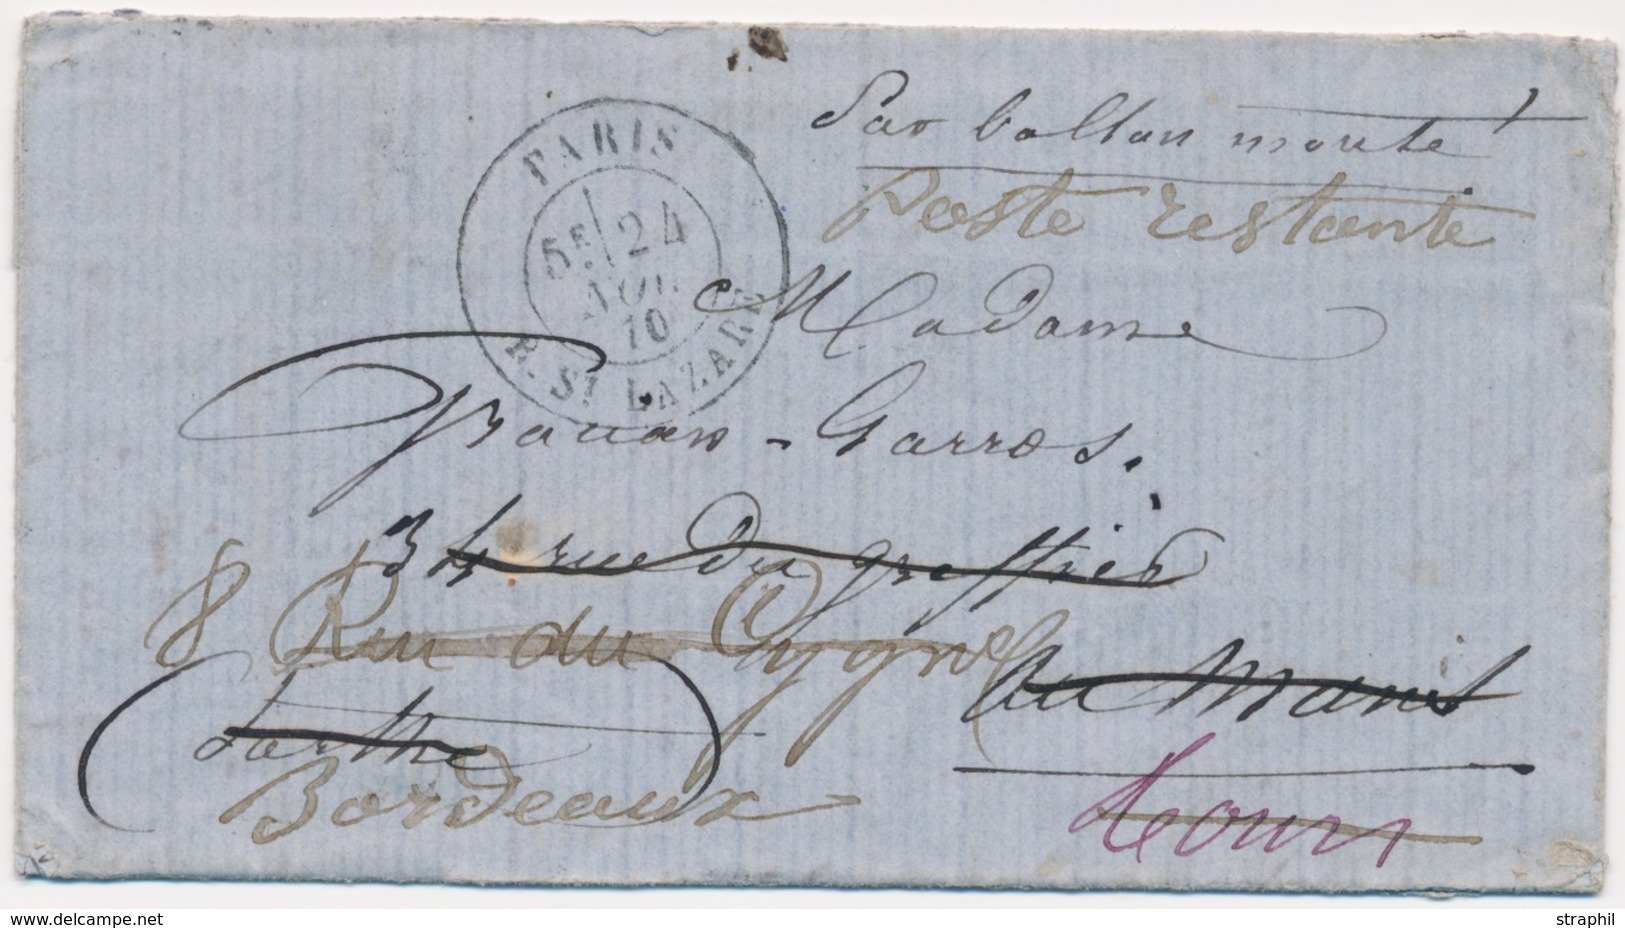 Par ballon monté
Poste restante
PARIS
5E 24
NOV.
70
R. ST LAZARE
Madame
Garros.
34 rue du greffier
8 Rue du Cygne
au Mans
Sarthe
Bordeaux
Tours
www.delcampe.net
straphil